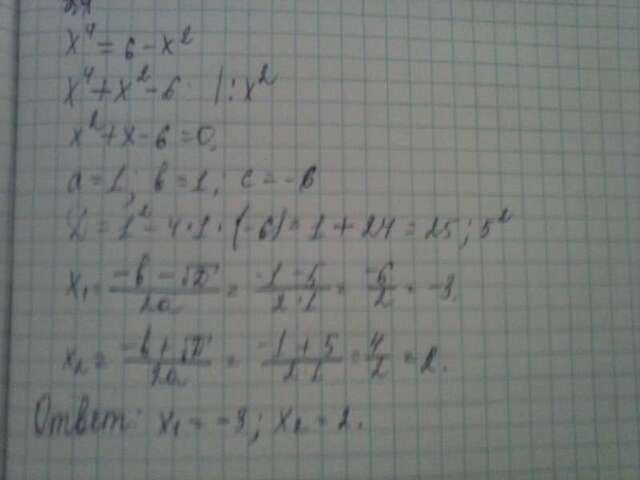 x⁴ = 6 - x²
x⁴ + x² - 6 | : x²
x² + x - 6 = 0.
a = 1; b = 1; c = -6
D = 1² - 4 · 1 · (-6) = 1 + 24 = 25; 5²
x₁ = (-b - √D)/2a = (-1 - 5)/(2 · 1) = -6/2 = -3.
x₂ = (-b + √D)/2a = (-1 + 5)/(2 · 1) = 4/2 = 2.
Ответ: x₁ = -3; x₂ = 2.